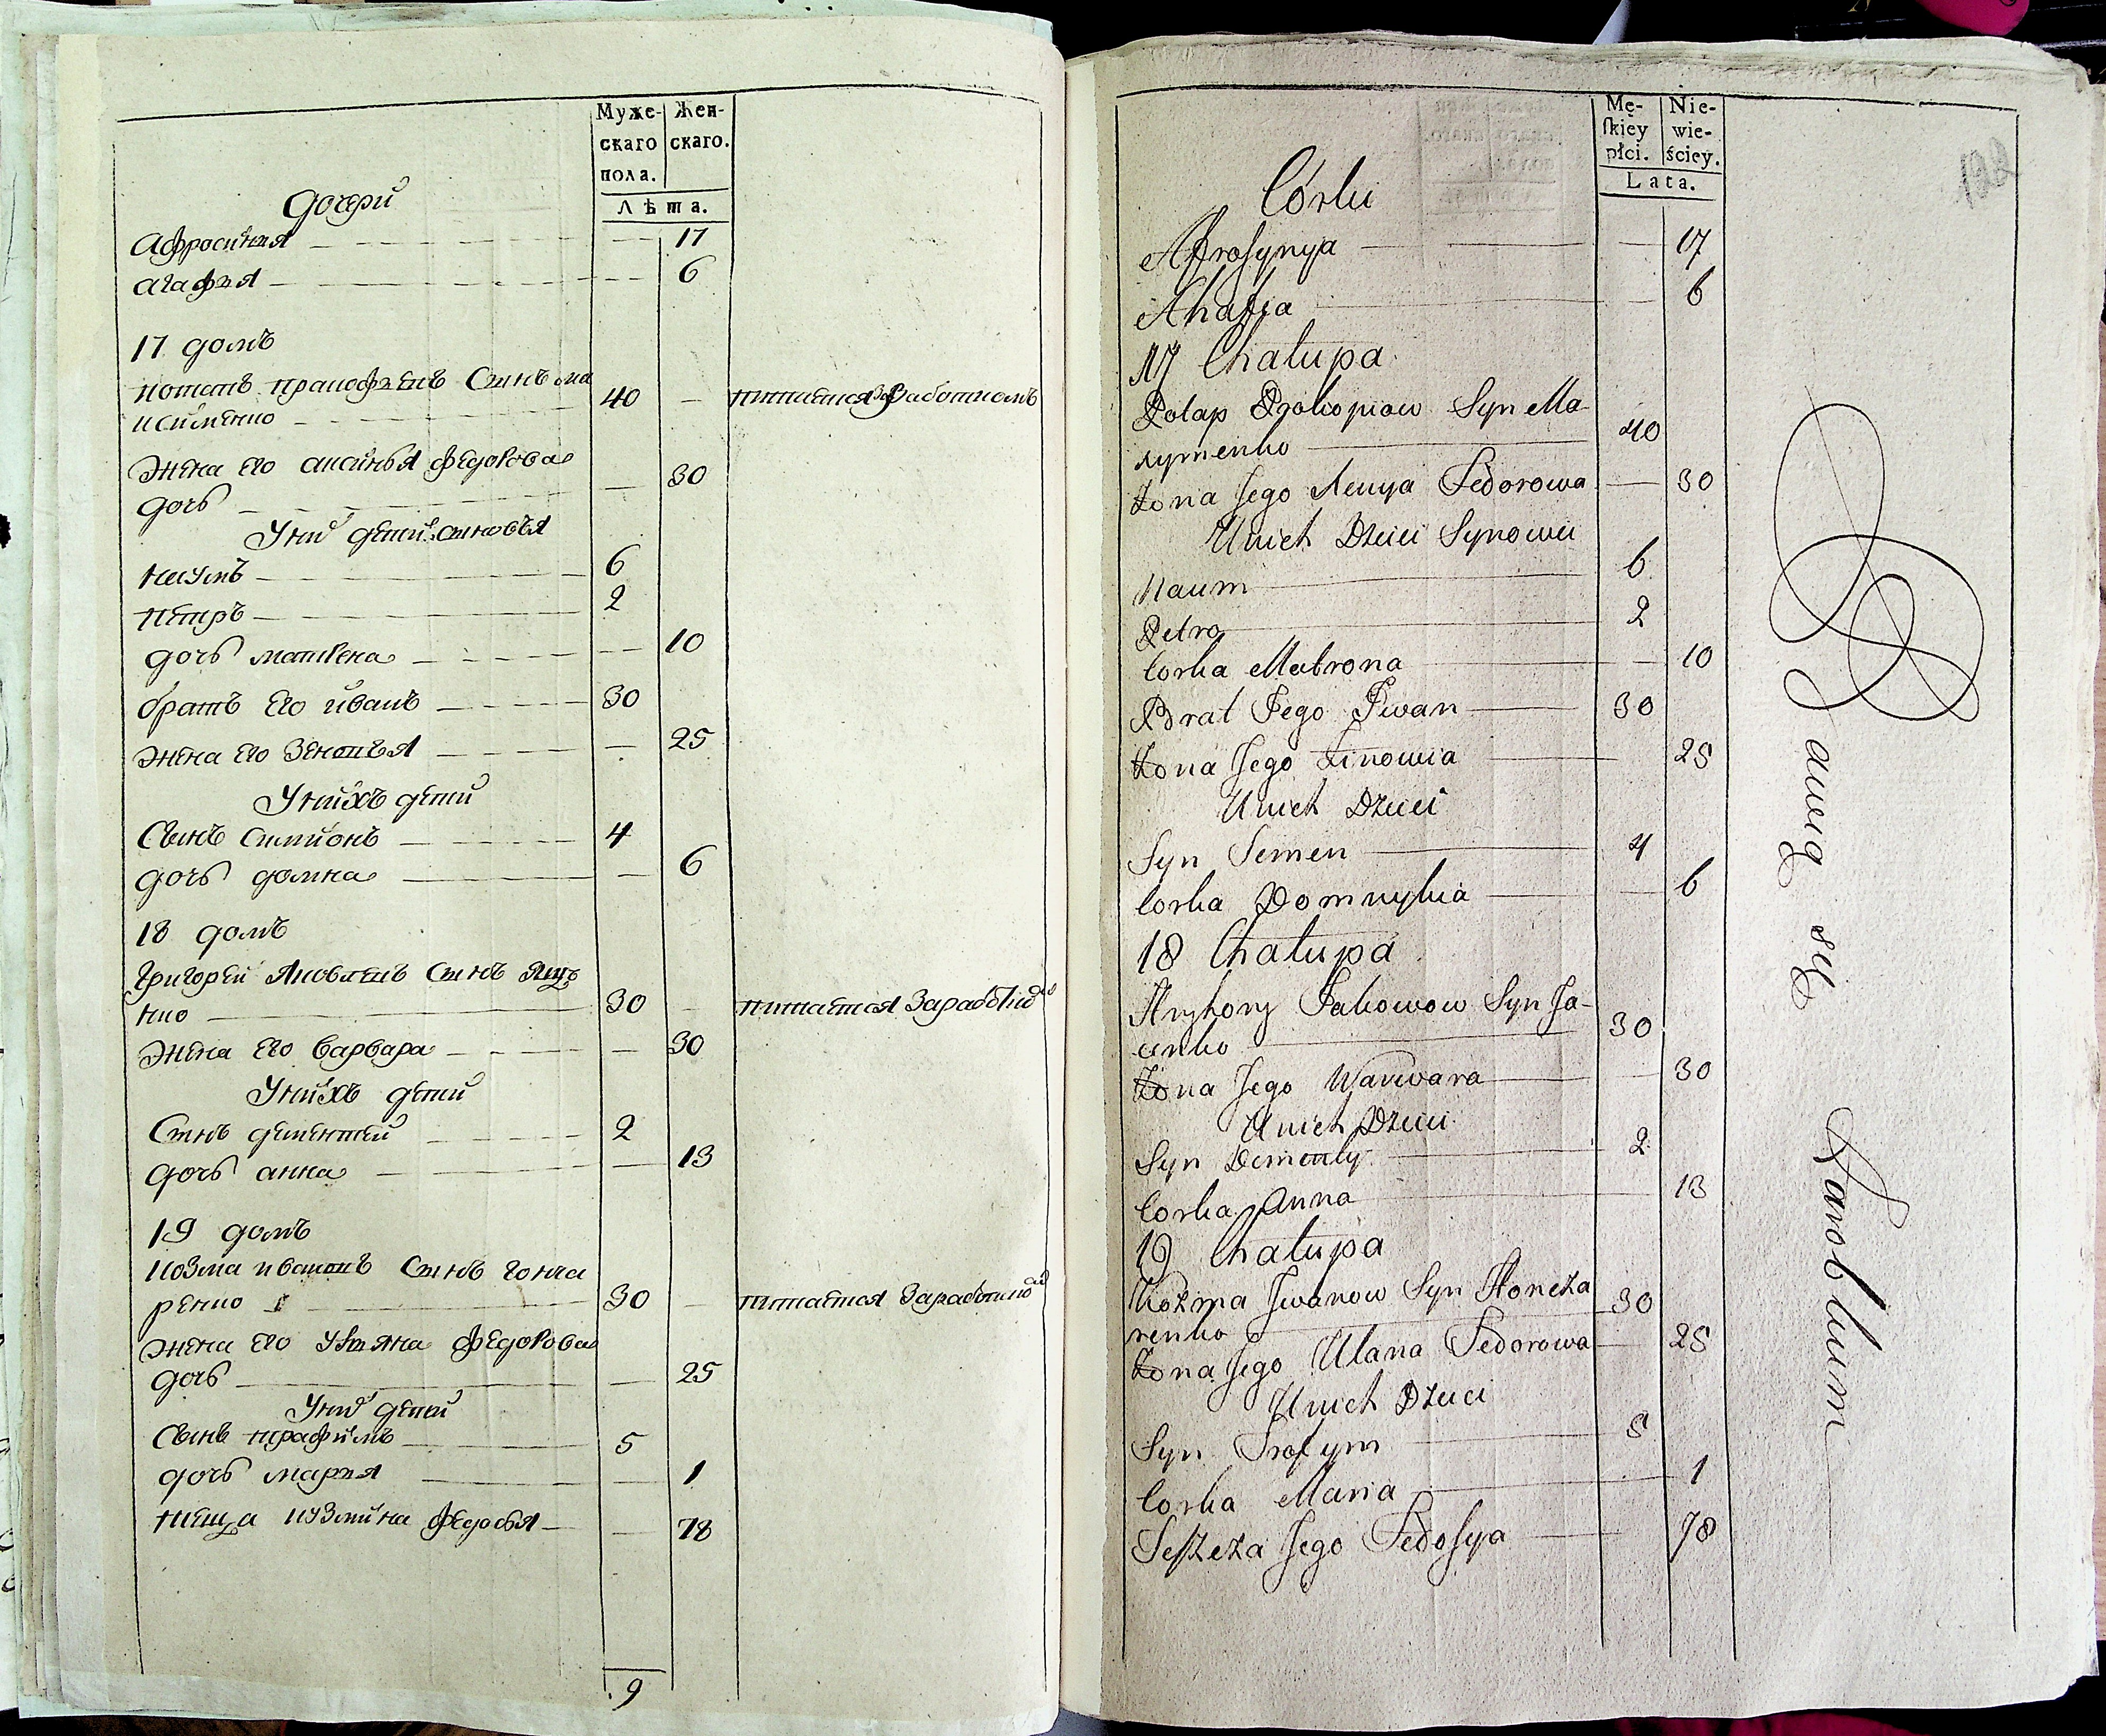 Муже-
скаго
пола.
Жен-
скаго.
Лѣта.
дочери
Афросинья 17
агафья 6
17 домъ
потапъ пракофьевъ Сынъ ма
ксименко 40 питается Заработкомъ
жена его аксинья федорова
дочь 30
У них дети сыновья
наумъ 6
петръ 2
дочь матрена 10
братъ его иванъ 30
жена его Зеновья 25
У нихъ дети
Сынъ Симионъ 4
дочь домна 6
18 домъ
Григорей Яковлевъ Сынъ Яце
нко 30 питается Заработком
жена его варвара 30
У нихъ дети
Сынъ дементей 2
дочь анна 13
19 домъ
козма ивановъ Сынъ гонча
ренко 30 питается Заработком
жена его ульяна федорова
дочь 25
У них дети
Сынъ трафимъ 5
дочь марья 1
теща кузмина федосья 78
9
Mę-
skiey
płci.
Nie-
wie-
ściey.
Lata.
122
Córki
Afrosynya 17
Ahafia 6
17 Chałupa
Potap Prokopiow Syn Ma-
xymenko 40
Żona Jego Xenya Fedorowa 30
U nich Dzieci Synowie
Naum 6
Petro 2
Corka Matrona 10
Brat Jego Iwan 30
Żona Jego Zinowia 25
U nich Dzieci
Syn Semen 4
Corka Domnykia 6
18 Chałupa
Hryhory Jakowow Syn Ja-
cenko 30
Żona Jego Warwara 30
U nich Dzieci
Syn Dementy 2
Corka Anna 13
19 Chałupa
Kozma Iwanow Syn Honcza
renko 30
Żona Jego Ulana Fedorowa 25
U nich Dzieci
Syn Trofym 5
Corka Maria 1
Teszcza Jego Fedosya 78